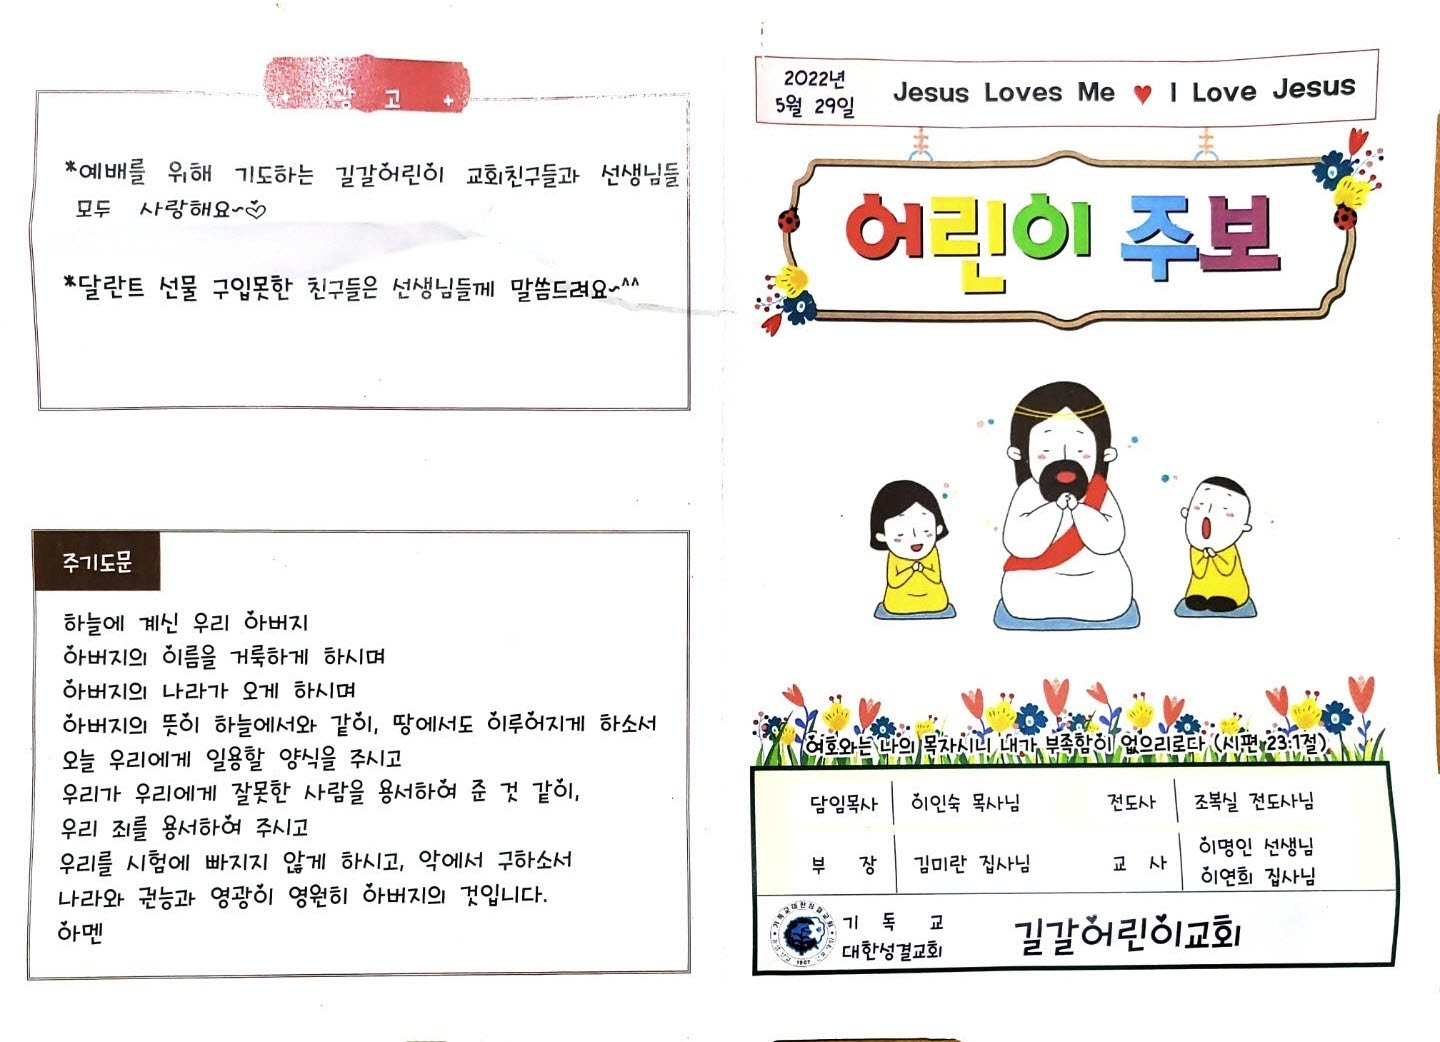 광고
*예배를 위해 기도하는 길갈어린이 교회친구들과 선생님들
모두 사랑해요~♡
*달란트 선물 구입못한 친구들은 선생님들께 말씀드려요~^^
주기도문
하늘에 계신 우리 아버지
아버지의 이름을 거룩하게 하시며
아버지의 나라가 오게 하시며
아버지의 뜻이 하늘에서와 같이, 땅에서도 이루어지게 하소서
오늘 우리에게 일용할 양식을 주시고
우리가 우리에게 잘못한 사람을 용서하여 준 것 같이,
우리 죄를 용서하여 주시고
우리를 시험에 빠지지 않게 하시고, 악에서 구하소서
나라와 권능과 영광이 영원히 아버지의 것입니다.
아멘
2022년
5월 29일
Jesus Loves Me ♥ I Love Jesus
어린이 주보
여호와는 나의 목자시니 내가 부족함이 없으리로다 (시편 23:1절)
담임목사 이인숙 목사님 전도사 조복실 전도사님
부 장 김미란 집사님 교 사 이명인 선생님
이연희 집사님
기독교대한성결교회
1907
기 독 교
대한성결교회
길갈어린이교회